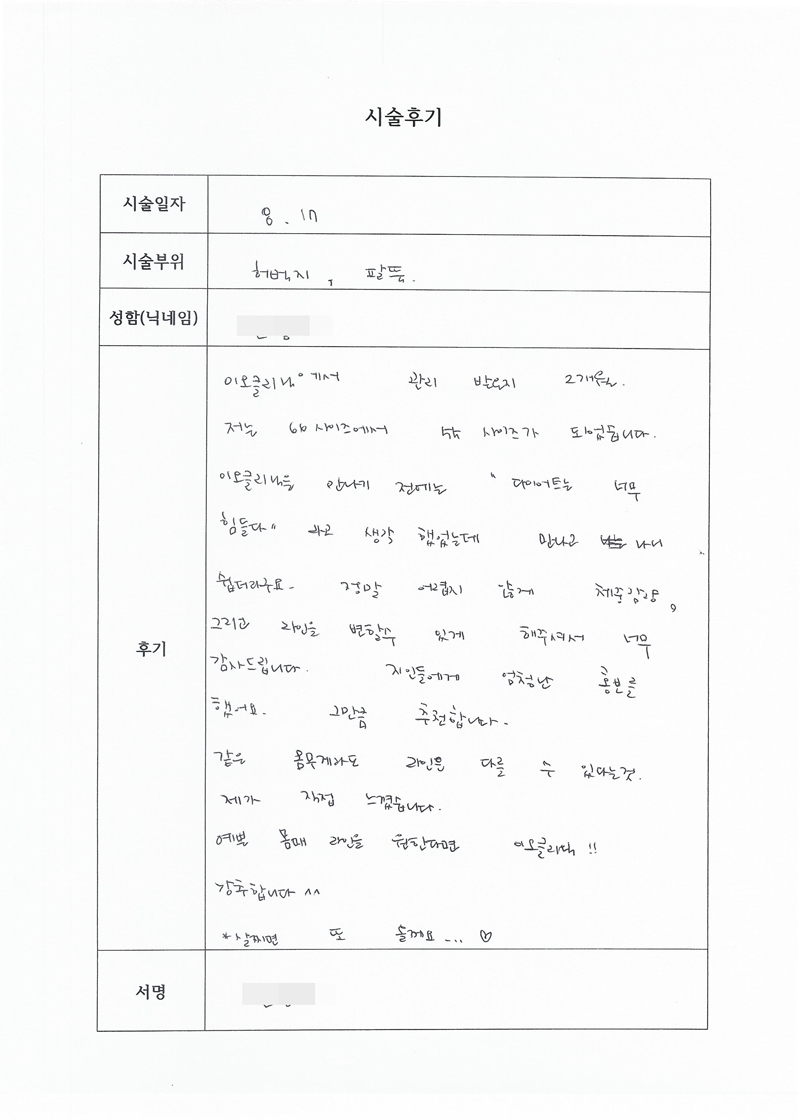 시술후기
시술일자 8. 17
시술부위 허벅지, 팔뚝.
성함(닉네임)
후기
이오클리닉에서 관리 받은지 2개월.
저는 66 사이즈에서 사이즈가 되었습니다.
이오클리닉을 만나기 전에는 "다이어트는 너무
힘들다" 라고 생각 했었는데 만나고 나니
쉽더라구요. 정말 어렵지 않게 체중감량,
그리고 라인을 변할수 있게 해주셔서 너무
감사드립니다. 지인들에게 엄청난 홍보를
했어요. 그만큼 추천합니다.
같은 몸무게라도 라인은 다를 수 있다는것.
제가 직접 느꼈습니다.
예쁜 몸매 라인을 원한다면 이오클리닉!!
강추합니다 ^^
*살찌면 또 올께요... ♡
서명